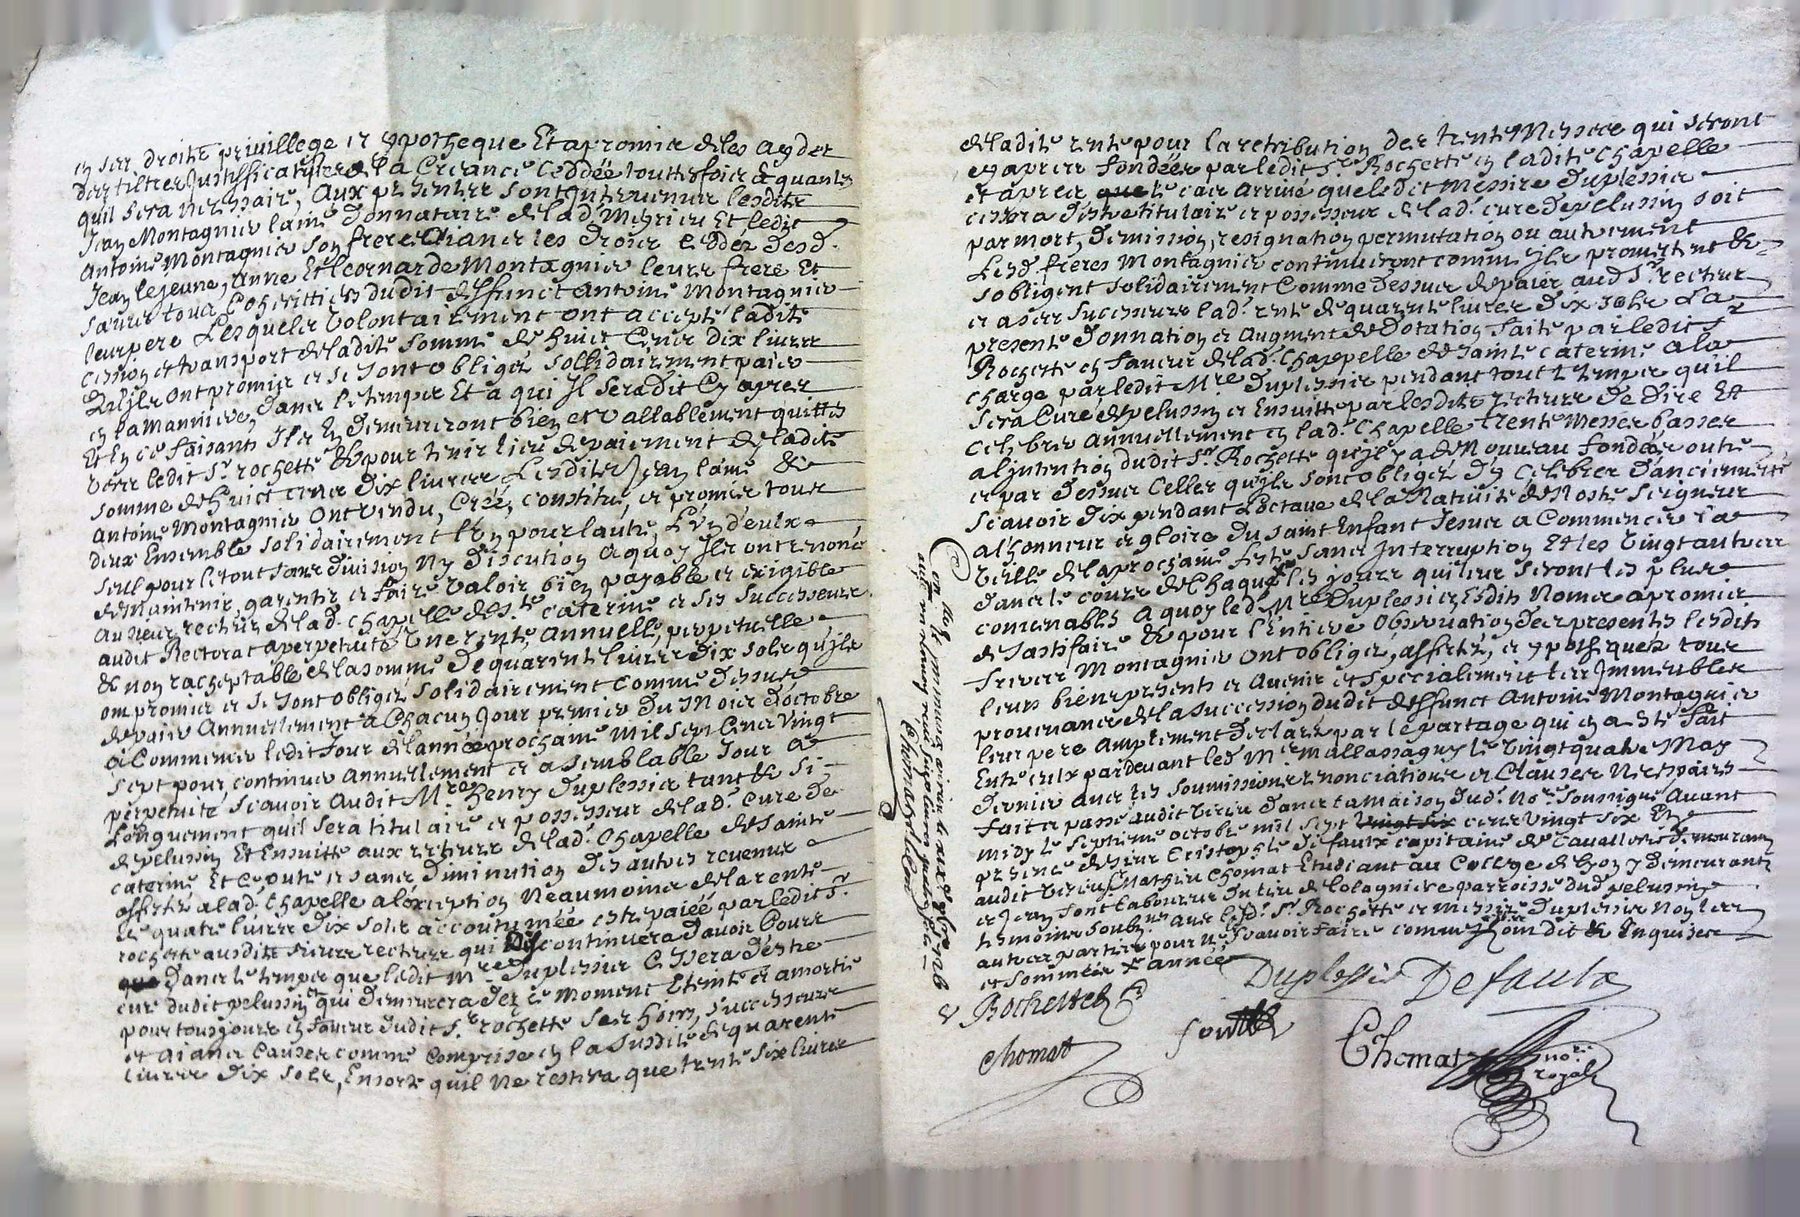 en ses droits privillege et ypotheque Et a promis de les ayder
des tiltres Justifficatifs de la Creance Ceddée touttefois & quantes
quil sera nessaire, Aux presentes sont Intervenus lesdits
Jean Montagnier laisné donnataire de lad. Meyrieu Et ledit
Antoine Montagnier son frere ayans les droits ceddez desd.
Jean lejeune, Anne Et leonarde Montagnier leurs frere Et
sœurs tous Coherittiers dudit deffunct Antoine Montagnier
leur pere Lesquels volontairement ont accepté ladite
cession et transport de ladite somme de huict Cens dix livres
quils ont promis et se sont obligés sollidairement paier
en la manniere, dans le temps Et a qui Il sera dit Cy apres
Et En ce faisant Ils En demeureront bien et vallablement quittes
vers ledit Sr. rochette & pour tenir lieu de paiement de ladite
somme de huict cens dix livres Lesdits Jean laisné &
Antoine Montagnier ont vendu, Créé, constitué, et promis tous
deux Ensemble solidairement l'un pour lautre, L'un d'eulx
seul pour le tout sans division Ny discution a quoy Ils ont renoncé
de Maintenir, garentir et faire valoir bien payable et exigible
au sieur recteur de lad. chapelle de Ste. caterine et ses successeurs
audit Rectorat a perpetuité Une rente Annuelle, perpetuelle
& non racheptable de la somme de quarente livres dix sols quils
ont promis et se sont obligez solidairement comme dessus
de paier Annuellement a Chacun Jour premier du Mois d'octobre
à Commencer ledit Jour de lannée prochaine mil sept Cens vingt
sept pour continuer annuellement et a semblable Jour a
perpetuité scavoir audit Mre. henry Duplessis tant & si
Longuement quil sera titulaire et possesseur de lad. Cure de
de pelussin Et Ensuitte aux recteurs de lad. Chapelle de Sainte
caterine Et Ce outre et sans diminution des autres revenus
affectés a lad. Chapelle a l'exception Neaumoins de la rente
de quatre livres dix sols accoutumée estre paiée par ledit Sr.
rochette ausdits sieurs recteurs qui continuera d'avoir Cours
dans le temps que ledit Mre. Duplessis Cessera d'estre
curé dudit pelussin qui demeurera dez le moment Eteinte et amortie
pour tousjours en faveur dudit Sr. rochette ses hoirs, successeurs
et aians Causes comme comprise en la susdite de quarente
livres dix sols, Ensorte quil Ne restera que trente six livres
de ladite rente pour la retribution des trente Messes qui seront
cy apres fondées par ledit Sr. Rochette en ladite Chapelle
et apres le cas arrivé que ledit Messire Duplessis
cessera d'estre titulaire et possesseur de lad. cure de pelussin soit
par mort, demission, resignation permutation ou autrement
Lesd. freres Montagnier continueront comme Ils promettent &
s'obligent solidairement Comme dessus de paier aud. Sr. recteur
et a ses successeurs lad. rente de quarente livres dix sols La
presente donnation et augment de dotation faite par ledit Sr.
Rochette en faveur de lad. Chappelle de Sainte caterine a la
charge par ledit Mre. Duplessis pendant tout le temps quil
sera Curé de pelussin et Ensuitte par lesdits recteurs de dire Et
Celebrer annuellement en lad. Chapelle trente Messes basses
a lintention dudit Sr. Rochette quil y a de Nouveau fondées outre
et par dessus Celles quils sont obligés d'y Celebrer d'ancienneté
scavoir dix pendant L'octave de la Nativité de Nostre Seigneur
a lhonneur et gloire du saint Enfant Jesus a Commencer la
veille de la prochaine feste sans Interruption Et les vingt autres
dans le cours de chaque les jours qui leur seront les plus
comenables a quoy led. Mre. Duplessis Esdits Noms a promis
de sastifaire & pour l'Entiere observation des presentes lesdits
freres Montagnier ont obligés, affectés, et ypothequés tous
leurs biens presents et avenir et specialement les Immeubles
provenans de la succession dudit deffunct Antoine Montagnier
leur pere amplement declarés par le partage qui en a esté fait
Entre eulx pardevant led. Mre. Mallassagny le vingt quatre May
dernier avec les soumissions renonciations et Clauses Necessaires
fait et passé audit virieu dans la maison dud. No.re soussigné avant
midy le septieme octobre mil sept cens vingt six En
presence de sieur Cristophle de faulx capitaine de Cavallerie demeurant
audit virieu Sr. Mathieu Chomat Etudiant au College de lyon y demeurant
et Jean font laboureur du lieu de lolagniere parroisse dud. pelussin
tesmoins soubnes. avec lesd. Sr. Rochette et messire Duplessis Non les
autres parties pour ne scavoir faire comme Ils ont dit de Enquises
et sommées
Rochette
Duplessis Defaulx
Chomat
font
Chomat no.re royal